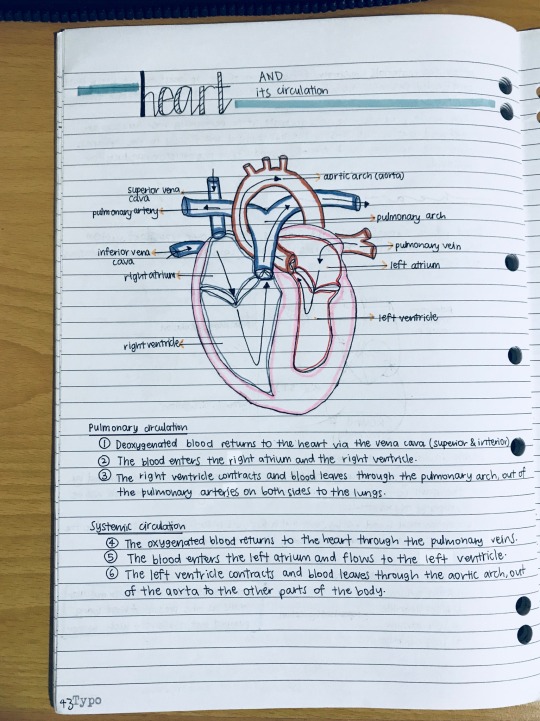 heart AND
its circulation
superior vena
cava
aortic arch (aorta)
pulmonary artery
pulmonary arch
inferior vena
cava
pulmonary vein
right atrium
left atrium
left ventricle
right ventricle
Pulmonary circulation
① Deoxygenated blood returns to the heart via the vena cava (superior & inferior)
② The blood enters the right atrium and the right ventricle.
③ The right ventricle contracts and blood leaves through the pulmonary arch, out of
the pulmonary arteries on both sides to the lungs.
Systemic circulation
④ The oxygenated blood returns to the heart through the pulmonary veins.
⑤ The blood enters the left atrium and flows to the left ventricle.
⑥ The left ventricle contracts and blood leaves through the aortic arch, out
of the aorta to the other parts of the body.
43 Typo